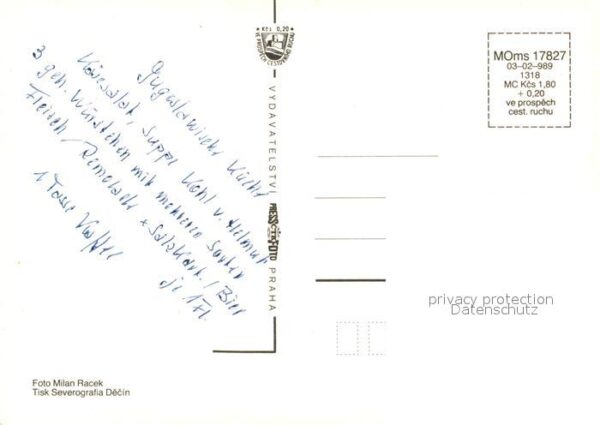 Jugoslawische Küche
Käsesalat, Suppe Kohl v. Helmut
3 geb. Würstchen mit mehreren Sorten
Fleisch, Remolade + Salzkart. / Bier
1 Tasse Kaffee je 1 Fl.
Kčs 0,20
VE PROSPĚCH CESTOVNÍHO RUCHU
VYDAVATELSTVÍ PRESSFOTO PRAHA
MOms 17827
03–02–989
1318
MC Kčs 1,80
+ 0,20
ve prospěch
cest. ruchu
privacy protection
Datenschutz
Foto Milan Racek
Tisk Severografia Děčín